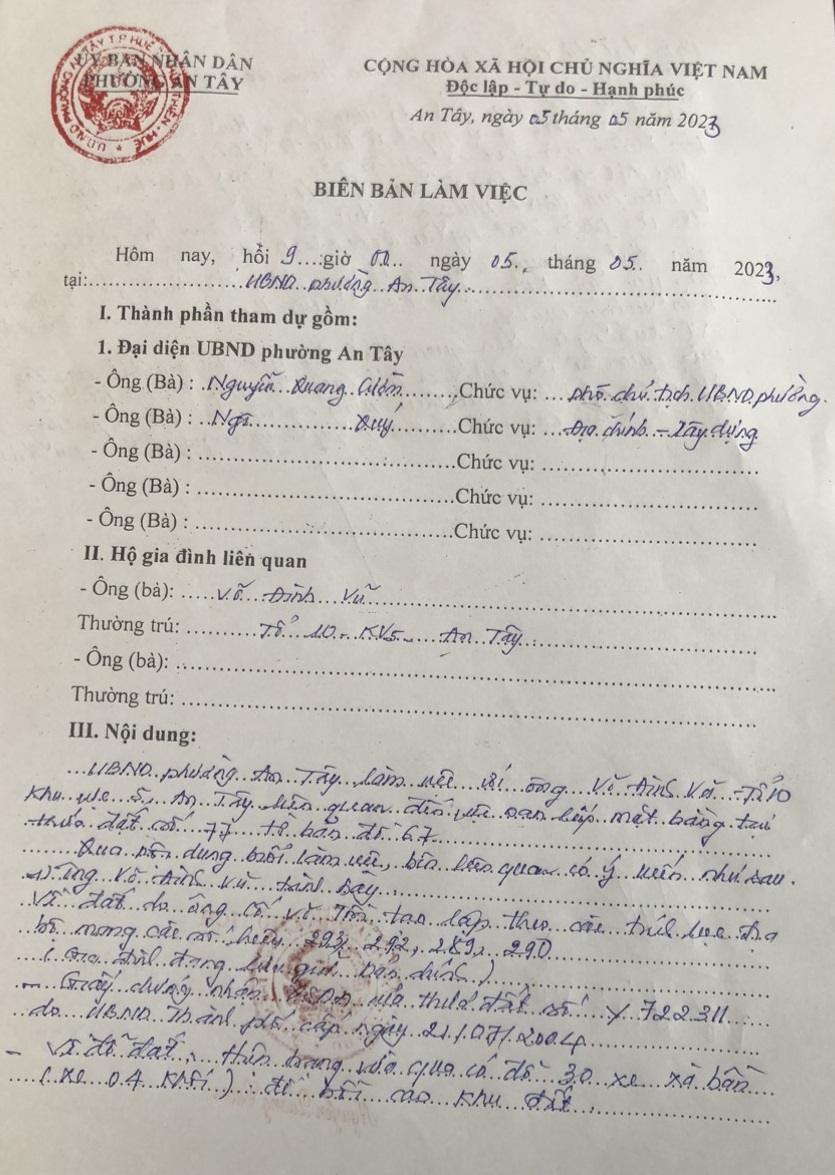 ỦY BAN NHÂN DÂN
PHƯỜNG AN TÂY
CỘNG HÒA XÃ HỘI CHỦ NGHĨA VIỆT NAM
Độc lập - Tự do - Hạnh phúc
An Tây, ngày 05 tháng 05 năm 2023
BIÊN BẢN LÀM VIỆC
Hôm nay, hồi 9 giờ 00 ngày 05 tháng 05 năm 2023,
tại: UBND phường An Tây
I. Thành phần tham dự gồm:
1. Đại diện UBND phường An Tây
- Ông (Bà) : Nguyễn Quang Chức vụ: phó chủ tịch UBND phường.
- Ông (Bà) : Ngô Quý Chức vụ: Địa chính - Xây dựng
- Ông (Bà) : Chức vụ:
- Ông (Bà) : Chức vụ:
- Ông (Bà) : Chức vụ:
II. Hộ gia đình liên quan
- Ông (bà): Võ Đình Vũ
Thường trú: Tổ 10 - KV5 - An Tây
- Ông (bà):
Thường trú:
III. Nội dung:
UBND phường An Tây làm việc với ông Võ Đình Vũ - Tổ 10
Khu vực 5, An Tây liên quan đến việc san lấp mặt bằng tại
thửa đất số 77 tờ bản đồ 67
Qua nội dung buổi làm việc, bên liên quan có ý kiến như sau.
1) Ông Võ Đình Vũ trình bày
Về đất do ông cố Võ tạo lập theo các trích lục địa
bộ mang các số hiệu 293, 292, 289, 290
(Gia đình đang lưu giữ bản chính)
- Giấy chứng nhận QSDĐ của thửa đất số Y 722311
do UBND Thành phố cấp ngày 21/07/2004
- Về đổ đất, thời gian vừa qua có đổ 30 xe xà bần
(xe 04 khối) để bồi cao khu đất.